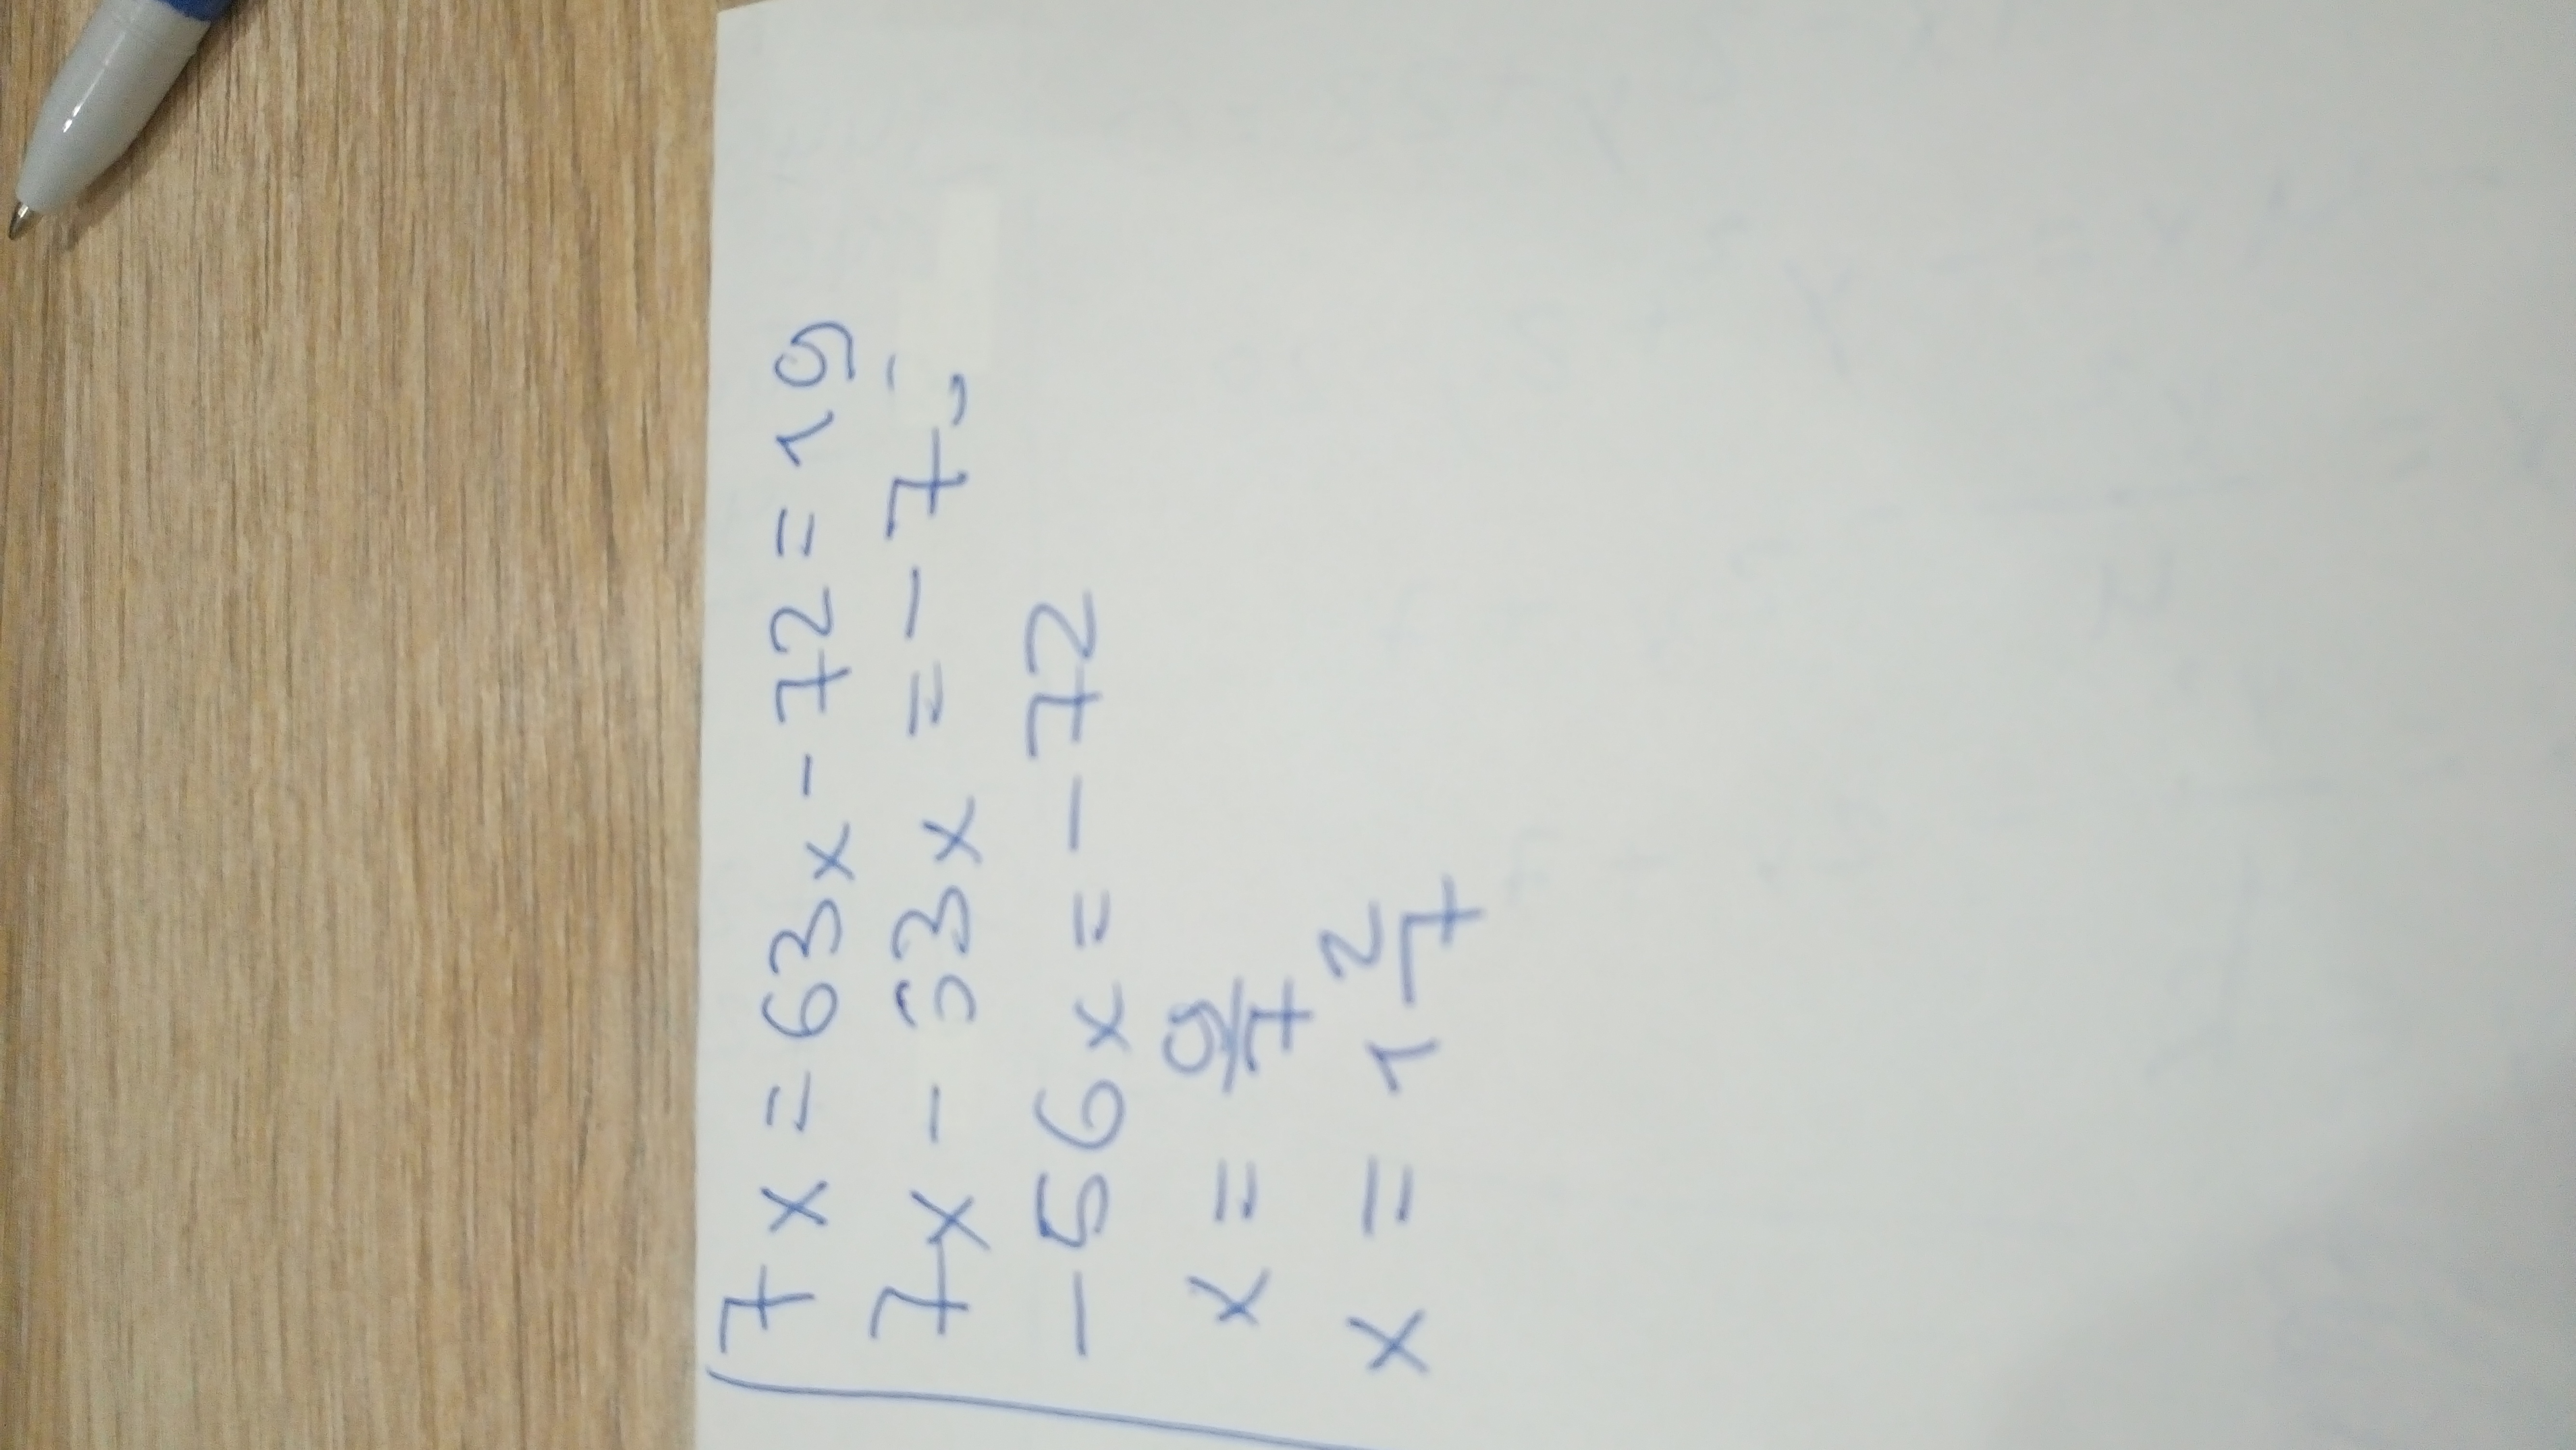 7x = 63x - 72 = 19
7x - 63x = - 7
-56x = - 72
x = 9/7
x = 1 2/7